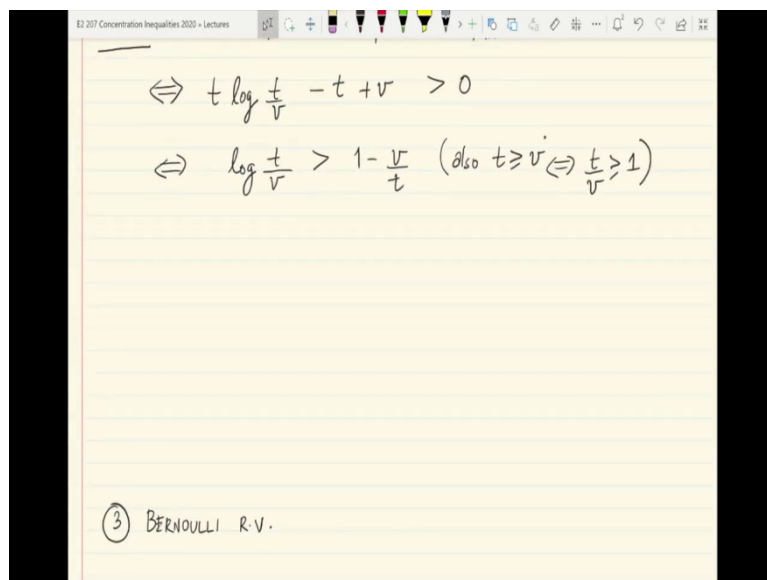 E2 207 Concentration Inequalities 2020 » Lectures
⇔ t log t/v - t + v > 0
⇔ log t/v > 1 - v/t (also t ≥ v ⇔ t/v ≥ 1)
③ BERNOULLI R.V.